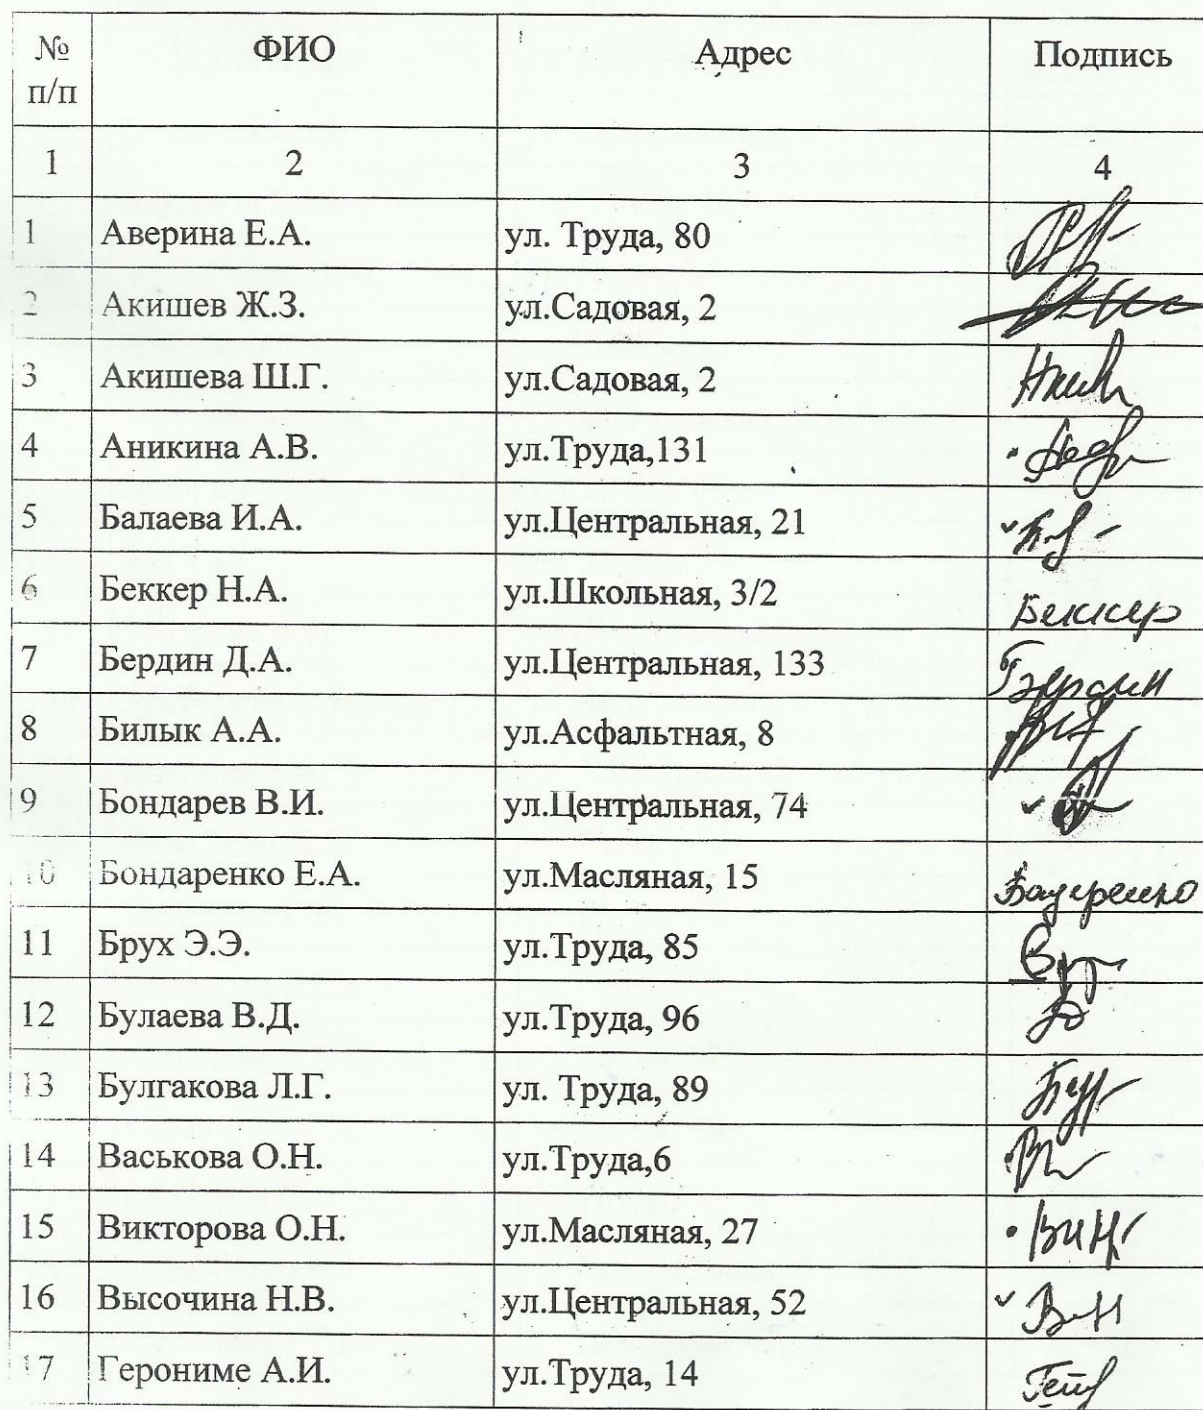 № п/п ФИО Адрес Подпись
1 2 3 4
1 Аверина Е.А. ул. Труда, 80
2 Акишев Ж.З. ул.Садовая, 2
3 Акишева Ш.Г. ул.Садовая, 2
4 Аникина А.В. ул.Труда,131
5 Балаева И.А. ул.Центральная, 21
6 Беккер Н.А. ул.Школьная, 3/2 Беккер
7 Бердин Д.А. ул.Центральная, 133 Бердин
8 Билык А.А. ул.Асфальтная, 8
9 Бондарев В.И. ул.Центральная, 74
10 Бондаренко Е.А. ул.Масляная, 15
11 Брух Э.Э. ул.Труда, 85
12 Булаева В.Д. ул.Труда, 96
13 Булгакова Л.Г. ул. Труда, 89
14 Васькова О.Н. ул.Труда,6
15 Викторова О.Н. ул.Масляная, 27
16 Высочина Н.В. ул.Центральная, 52
17 Герониме А.И. ул.Труда, 14